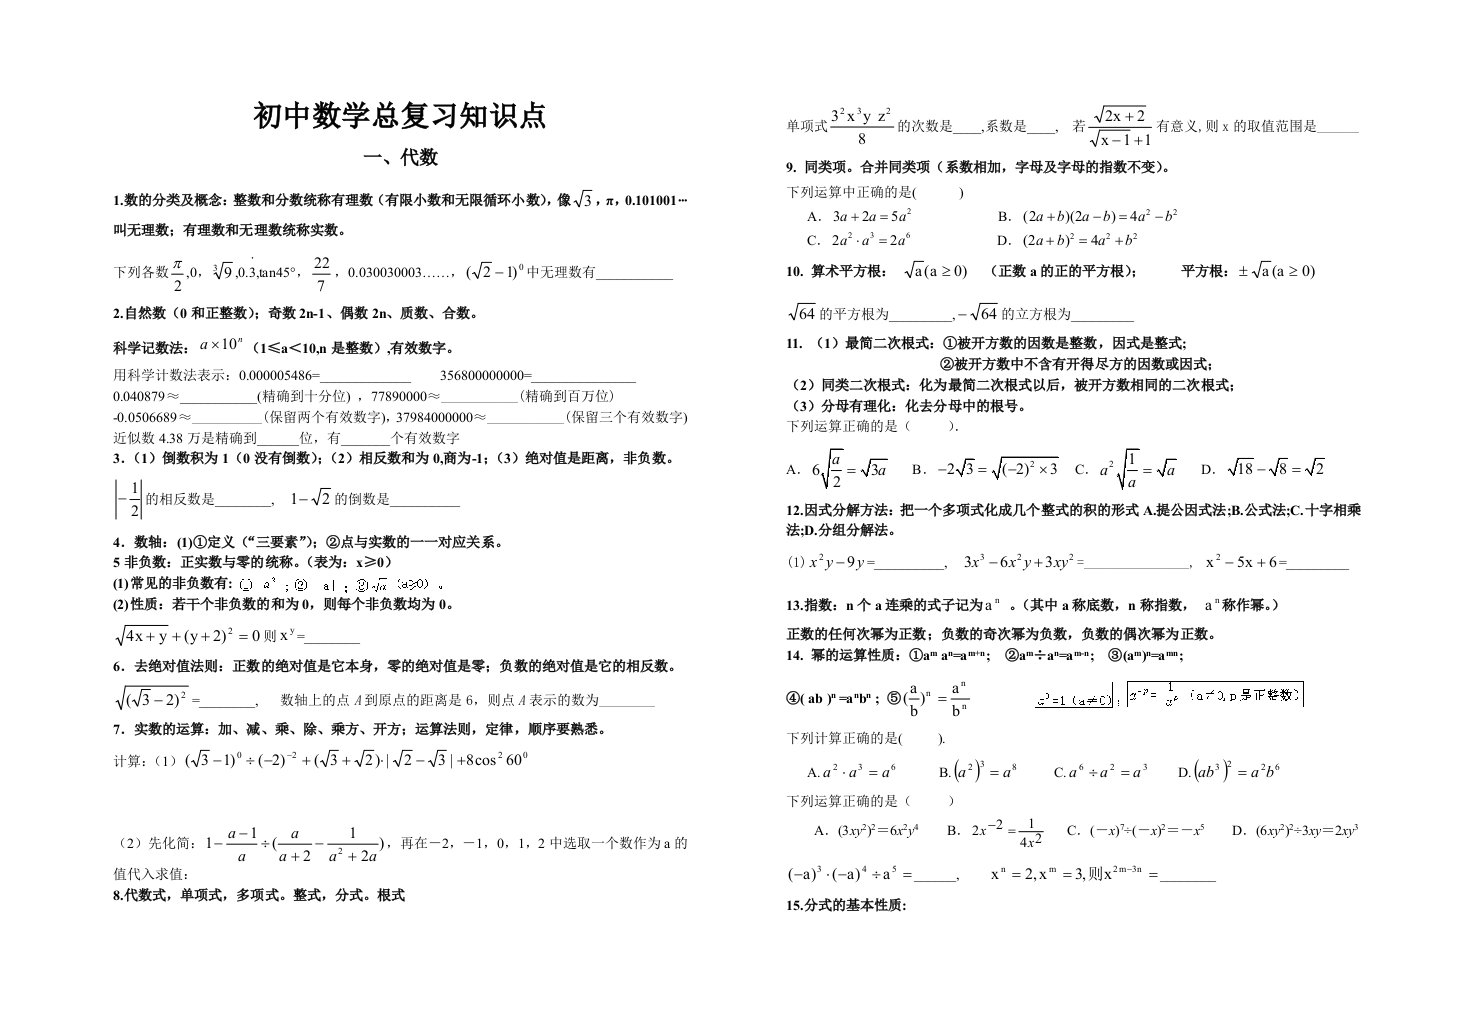 初中数学总复习知识点
一、代数
1.数的分类及概念：整数和分数统称有理数（有限小数和无限循环小数），像√3，π，0.101001···
叫无理数；有理数和无理数统称实数。
下列各数π/2,0，∛9,0.3̇,tan45°，22/7，0.030030003……，(√2−1)⁰中无理数有___________
2.自然数（0 和正整数）；奇数 2n-1、偶数 2n、质数、合数。
科学记数法：a×10ⁿ（1≤a＜10,n 是整数）,有效数字。
用科学计数法表示：0.000005486=_____________ 356800000000=_______________
0.040879≈___________(精确到十分位) ，77890000≈___________(精确到百万位)
-0.0506689≈__________(保留两个有效数字)，37984000000≈___________(保留三个有效数字)
近似数 4.38 万是精确到______位，有_______个有效数字
3．（1）倒数积为 1（0 没有倒数）；（2）相反数和为 0,商为-1；（3）绝对值是距离，非负数。
|−1/2|的相反数是________, 1−√2的倒数是__________
4．数轴：(1)①定义（“三要素”）；②点与实数的一一对应关系。
5 非负数：正实数与零的统称。（表为：x≥0）
(1)常见的非负数有: ① a² ；② a| ；③√a (a≥0) 。
(2)性质：若干个非负数的和为 0，则每个非负数均为 0。
√(4x+y)+(y+2)²=0则x^y=________
6．去绝对值法则：正数的绝对值是它本身，零的绝对值是零；负数的绝对值是它的相反数。
√((√3−2)²)=________, 数轴上的点 A 到原点的距离是 6，则点 A 表示的数为________
7．实数的运算：加、减、乘、除、乘方、开方；运算法则，定律，顺序要熟悉。
计算：（1）(√3−1)⁰÷(−2)⁻²+(√3+√2)·|√2−√3|+8cos²60⁰
（2）先化简：1−(a−1)/a÷(a/(a+2)−1/(a²+2a))，再在－2，－1，0，1，2 中选取一个数作为 a 的
值代入求值:
8.代数式，单项式，多项式。整式，分式。根式
单项式3²x³y z²/8的次数是____,系数是____, 若√(2x+2)/(√(x−1)+1)有意义,则 x 的取值范围是______
9. 同类项。合并同类项（系数相加，字母及字母的指数不变）。
下列运算中正确的是( )
A．3a+2a=5a² B．(2a+b)(2a−b)=4a²−b²
C．2a²·a³=2a⁶ D．(2a+b)²=4a²+b²
10. 算术平方根： √a(a≥0) （正数 a 的正的平方根）； 平方根：±√a(a≥0)
√64的平方根为_________,−√64的立方根为_________
11. （1）最简二次根式：①被开方数的因数是整数，因式是整式；
②被开方数中不含有开得尽方的因数或因式；
（2）同类二次根式：化为最简二次根式以后，被开方数相同的二次根式；
（3）分母有理化：化去分母中的根号。
下列运算正确的是（ ）.
A．6√(a/2)=√3a B．−2√3=√((−2)²×3) C．a²√(1/a)=√a D．√18−√8=√2
12.因式分解方法：把一个多项式化成几个整式的积的形式 A.提公因式法;B.公式法;C.十字相乘
法;D.分组分解法。
(1)x²y−9y=__________, 3x³−6x²y+3xy²=_______________, x²−5x+6=_________
13.指数：n 个 a 连乘的式子记为aⁿ 。（其中 a 称底数，n 称指数， aⁿ称作幂。）
正数的任何次幂为正数；负数的奇次幂为负数，负数的偶次幂为正数。
14. 幂的运算性质：①aᵐ aⁿ=aᵐ⁺ⁿ; ②aᵐ÷aⁿ=aᵐ⁻ⁿ; ③(aᵐ)ⁿ=aᵐⁿ;
④( ab )ⁿ =aⁿbⁿ ; ⑤(a/b)ⁿ=aⁿ/bⁿ a⁰=1（a≠0）；a⁻ᵖ=1/aᵖ（a≠0,p 是正整数）
下列计算正确的是( ).
A.a²·a³=a⁶ B.(a²)³=a⁸ C.a⁶÷a²=a³ D.(ab³)²=a²b⁶
下列运算正确的是（ ）
A．(3xy²)²＝6x²y⁴ B．2x⁻²=1/(4x²) C．(－x)⁷÷(－x)²＝－x⁵ D．(6xy²)²÷3xy＝2xy³
(−a)³·(−a)⁴÷a⁵=______, xⁿ=2,xᵐ=3,则x²ᵐ⁻³ⁿ=________
15.分式的基本性质: